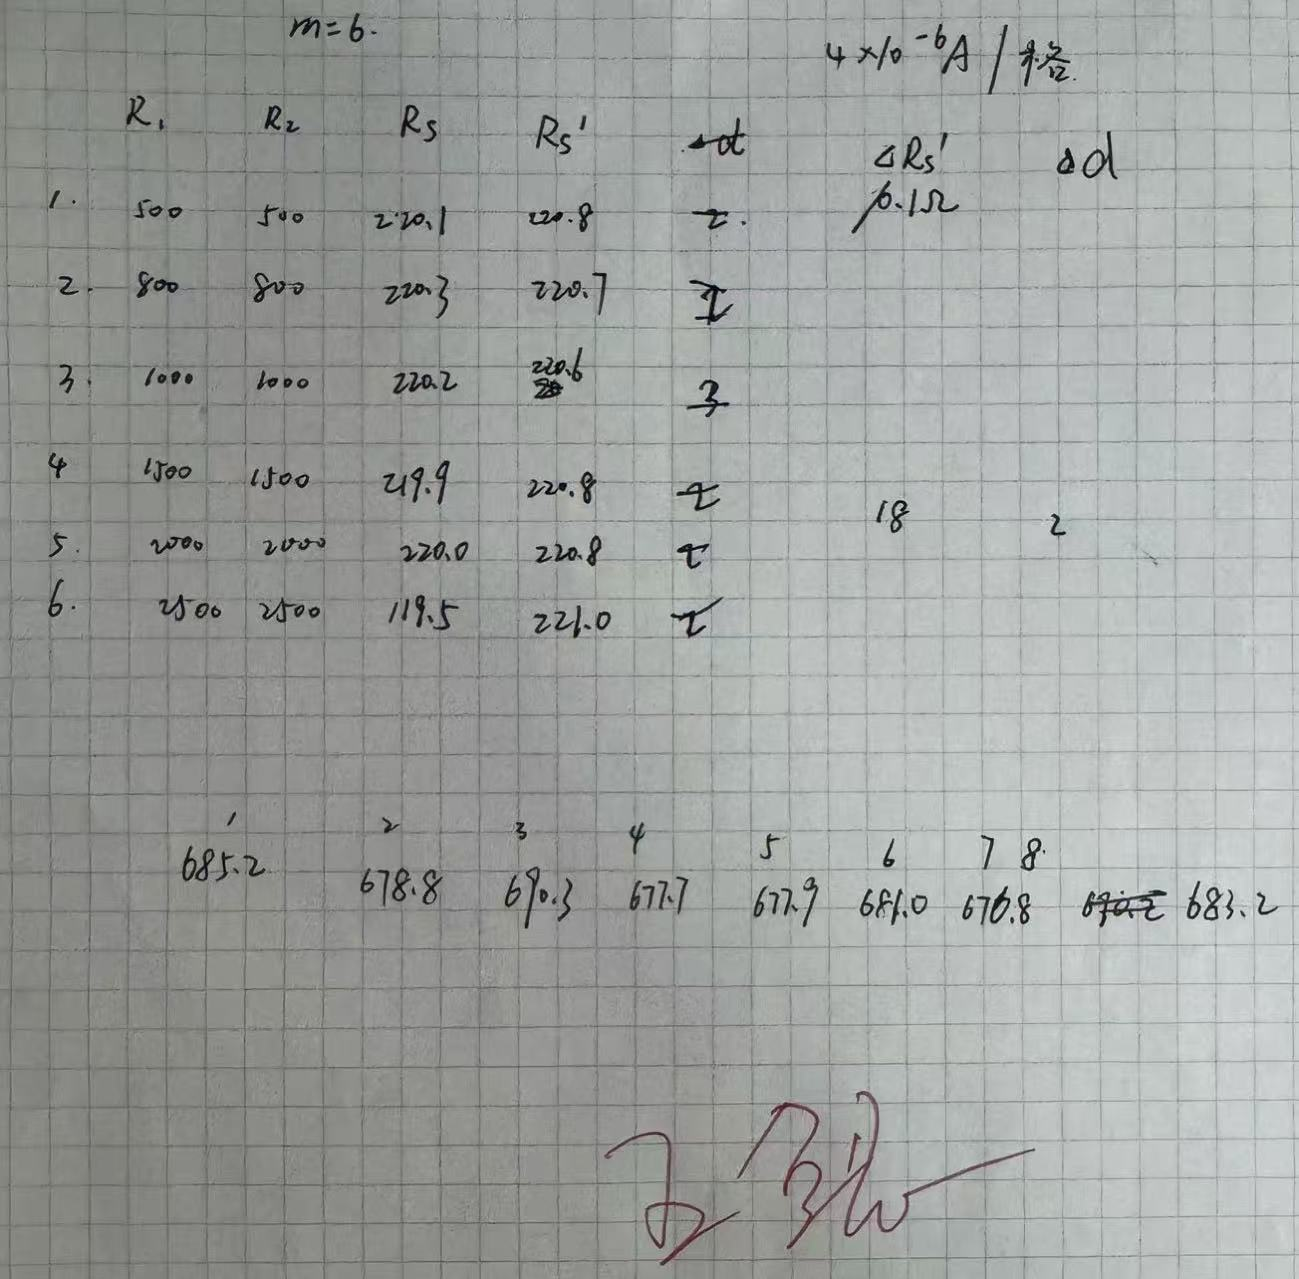 m=6.
4×10⁻⁶A/格
R₁ R₂ Rs Rs' Δd ΔRs' Δd
0.1Ω
1. 500 500 220.1 220.8 2.
2. 800 800 220.3 220.7
3. 1000 1000 220.2 220.6 3
4 1500 1500 219.9 220.8 2 18 2
5. 2000 2000 220.0 220.8 2
6. 2500 2500 119.5 221.0 2
1 2 3 4 5 6 7 8.
685.2 678.8 690.3 677.7 677.9 681.0 676.8 683.2